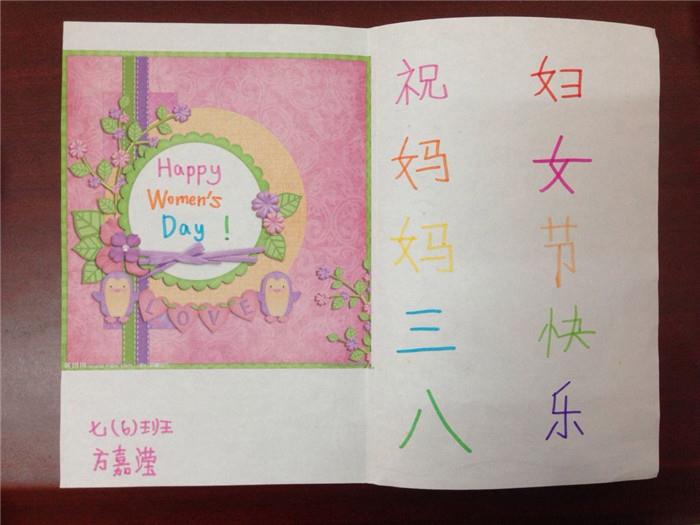 Happy
Women's
Day !
LOVE
七(6)班
方嘉滢
祝妈妈三八
妇女节快乐